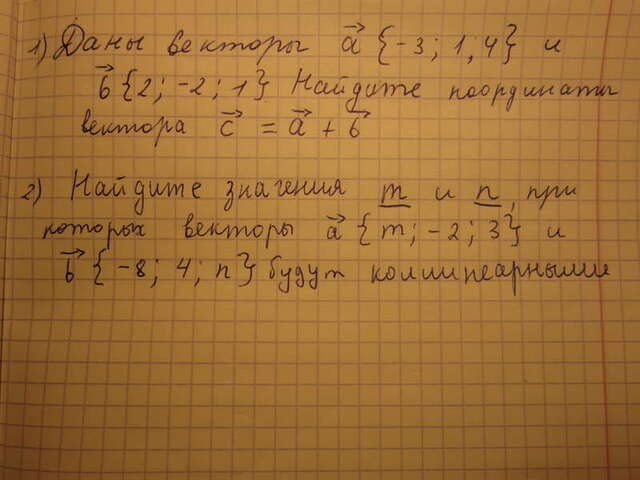 1) Даны векторы a {-3; 1; 4} и
b {2; -2; 1} Найдите координаты
вектора c = a + b
2) Найдите значения m и n, при
которых векторы a {m; -2; 3} и
b {-8; 4; n} будут коллинеарными